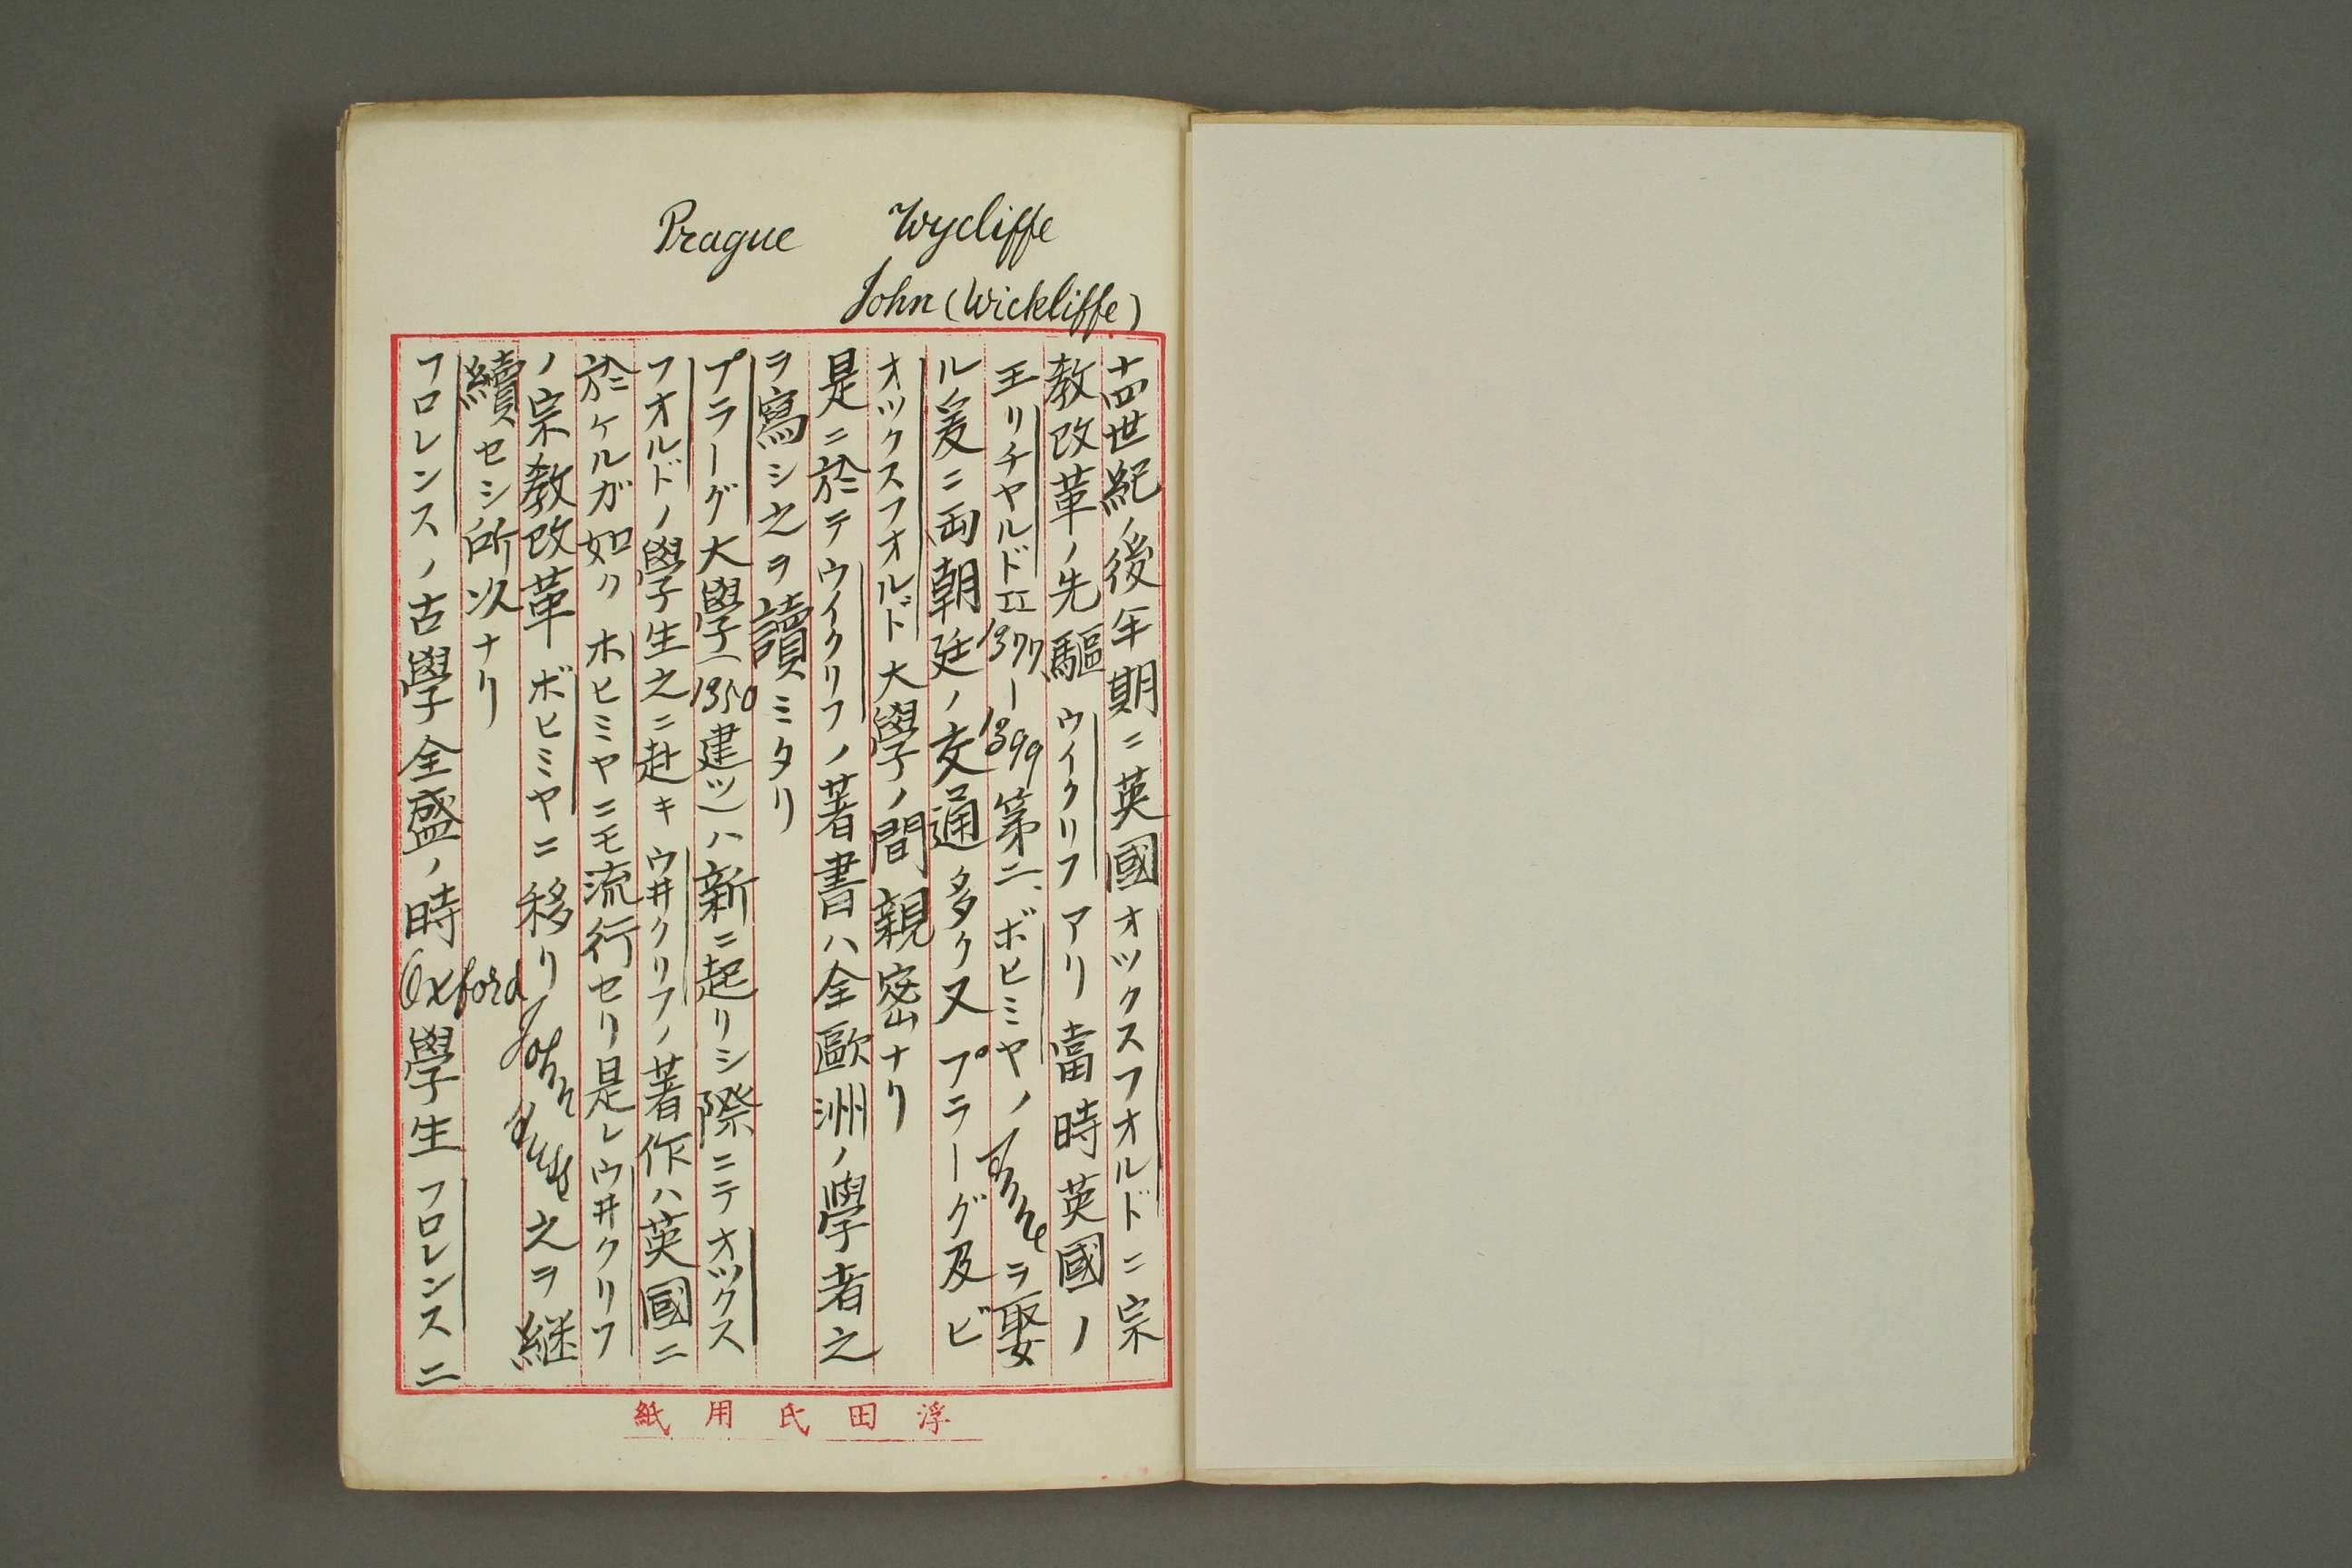 Wycliffe
John (Wickliffe)
Prague
十四世紀ノ後年期ニ英國オックスフオルドニ宗
教改革ノ先驅ウイクリフアリ當時英國ノ
王リチヤルドII 1377ー1399第二、ボヒミヤノAnneヲ娶
ル爰ニ両朝廷ノ交通多ク又プラーグ及ビ
オックスフオルド大學ノ間親密ナリ
是ニ於テウイクリフノ著書ハ全歐洲ノ學者之
ヲ寫シ之ヲ讀ミタリ
プラーグ大學(1350建ツ)ハ新ニ起リシ際ニテオックス
フオルドノ學生之ニ赴キウ井クリフノ著作ハ英國ニ
於ケルガ如クホヒミヤニモ流行セリ是レウ井クリフ
ノ宗教改革ボヒミヤニ移リJohn Huss之ヲ継
續セシ所以ナリ
フロレンスノ古學全盛ノ時Oxford學生フロレンスニ
浮田氏用紙